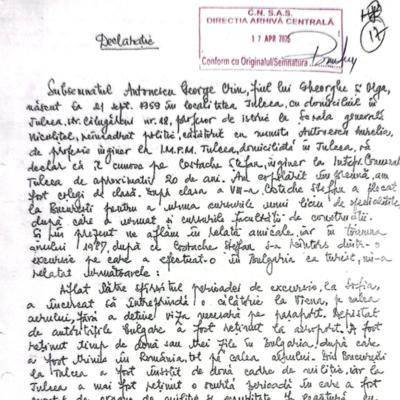 C.N.S.A.S.
DIRECȚIA ARHIVĂ CENTRALĂ
17 APR 2025
Conform cu Originalul/Semnatura
17
Declarație
Subsemnatul Antonescu George Crin, fiul lui Gheorghe și Olga,
născut la 21 sept. 1959 în localitatea Tulcea, cu domiciliul în
Tulcea, str. Călugăreni nr. 18, profesor de istorie la Școala generală
Niculițel, neîncadrat politic, căsătorit cu numita Antonescu Aurelia,
de profesie inginer la I.M.P.M. Tulcea, domiciliată în Tulcea,
declar că îl cunosc pe Costache Ștefan, inginer la
Tulcea de aproximativ 20 de ani. Am copilărit împreună, am
fost colegi de clasă. După clasa a VIII-a, Costache Ștefan a plecat
la București pentru a urma cursurile unui liceu de specialitate,
după care a urmat și cursurile facultății de construcții.
Și în prezent ne aflăm în relații amicale, iar în toamna
anului 1987, după ce Costache Ștefan s-a reîntors dintr-o
excursie pe care a efectuat-o în Bulgaria ca turist, mi-a
relatat următoarele:
Aflat către sfîrșitul perioadei de excursie, la Sofia,
a încercat să întreprindă o călătorie la Viena, pe calea
aerului, fără a deține viza necesară pe pașaport. Depistat
de autoritățile bulgare a fost reținut la aeroport. A fost
reținut timp de două sau trei zile în Bulgaria, după care
a fost trimis în România, tot pe calea aerului. Din București
la Tulcea a fost însoțit de două cadre de miliție, iar la
Tulcea a mai fost reținut o scurtă perioadă în care a fost